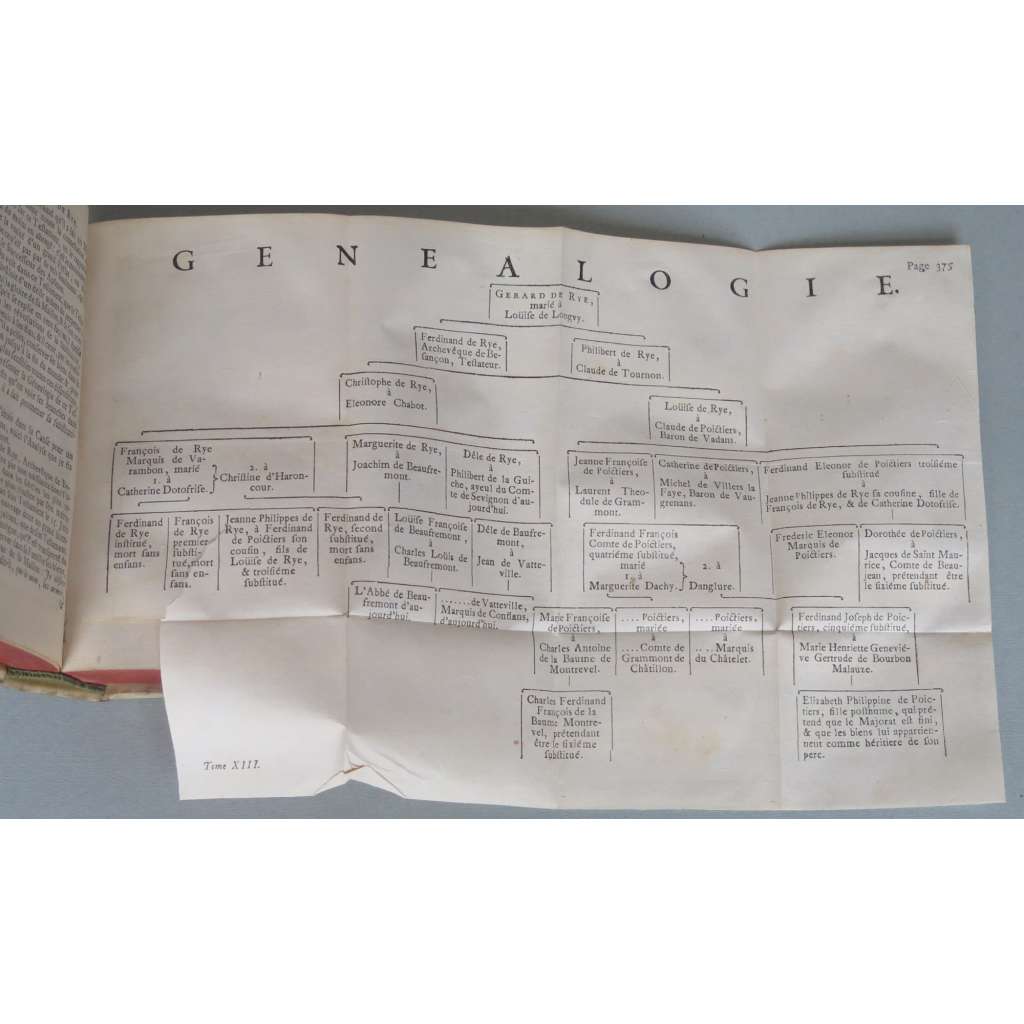 GENEALOGIE.
Page 375
GERARD DE RYE,
marié à
Loüise de Longvy.
Ferdinand de Rye,
Archevêque de Be-
sançon, Testateur.
Philibert de Rye,
à
Claude de Tournon.
Christophe de Rye,
à
Eleonore Chabot.
Loüise de Rye,
à
Claude de Poictiers,
Baron de Vadans.
François de Rye
Marquis de Va-
rambon, marié
1. à
Catherine Dotofrise.
2. à
Christine d'Haron-
cour.
Marguerite de Rye,
à
Joachim de Beaufre-
mont.
Déle de Rye,
à
Philibert de la Gui-
che, ayeul du Com-
te de Sevignon d'au-
jourd'hui.
Jeanne Françoise
de Poictiers,
à
Laurent Theo-
dule de Gram-
mont.
Catherine de Poictiers,
à
Michel de Villers la
Faye, Baron de Vau-
grenans.
Ferdinand Eleonor de Poictiers troisiéme
substitué
à
Jeanne Philippes de Rye sa cousine, fille de
François de Rye, & de Catherine Dotofrise.
Ferdinand
de Rye
institué,
mort sans
enfans.
François
de Rye
premier
substi-
tué, mort
sans en-
fans.
Jeanne Philippes de
Rye, à Ferdinand
de Poictiers son
cousin, fils de
Loüise de Rye,
& troisiéme
substitué.
Ferdinand de
Rye, second
substitué,
mort sans
enfans.
Loüise Françoise
de Beaufremont,
à
Charles Loüis de
Beaufremont.
Déle de Baufre-
mont,
à
Jean de Vatte-
ville.
Ferdinand François
Comte de Poictiers,
quatriéme substitué,
marié
1. à
Marguerite Dachy.
2. à
Danglure.
Frederic Eleonor
Marquis de
Poictiers.
Dorothée de Poictiers,
à
Jacques de Saint Mau-
rice, Comte de Beau-
jean, prétendant être
le sixiéme substitué.
L'Abbé de Beau-
fremont d'au-
jourd'hui.
.......de Vatteville,
Marquis de Conflans,
d'aujourd'hui.
Marie Françoise
de Poictiers,
à
Charles Antoine
de la Baume de
Montrevel.
....Poictiers,
mariée
à
....Comte de
Grammont de
Châtillon.
....Poictiers,
mariée
à
....Marquis
du Châtelet.
Ferdinand Joseph de Poic-
tiers, cinquiéme substitué,
à
Marie Henriette Genevié-
ve Gertrude de Bourbon
Malauze.
Charles Ferdinand
François de la
Baume Montre-
vel, prétendant
être le sixiéme
substitué.
Elizabeth Philippine de Poic-
tiers, fille posthume, qui pré-
tend que le Majorat est fini,
& que les biens lui appartien-
nent comme héritiere de son
pere.
Tome XIII.